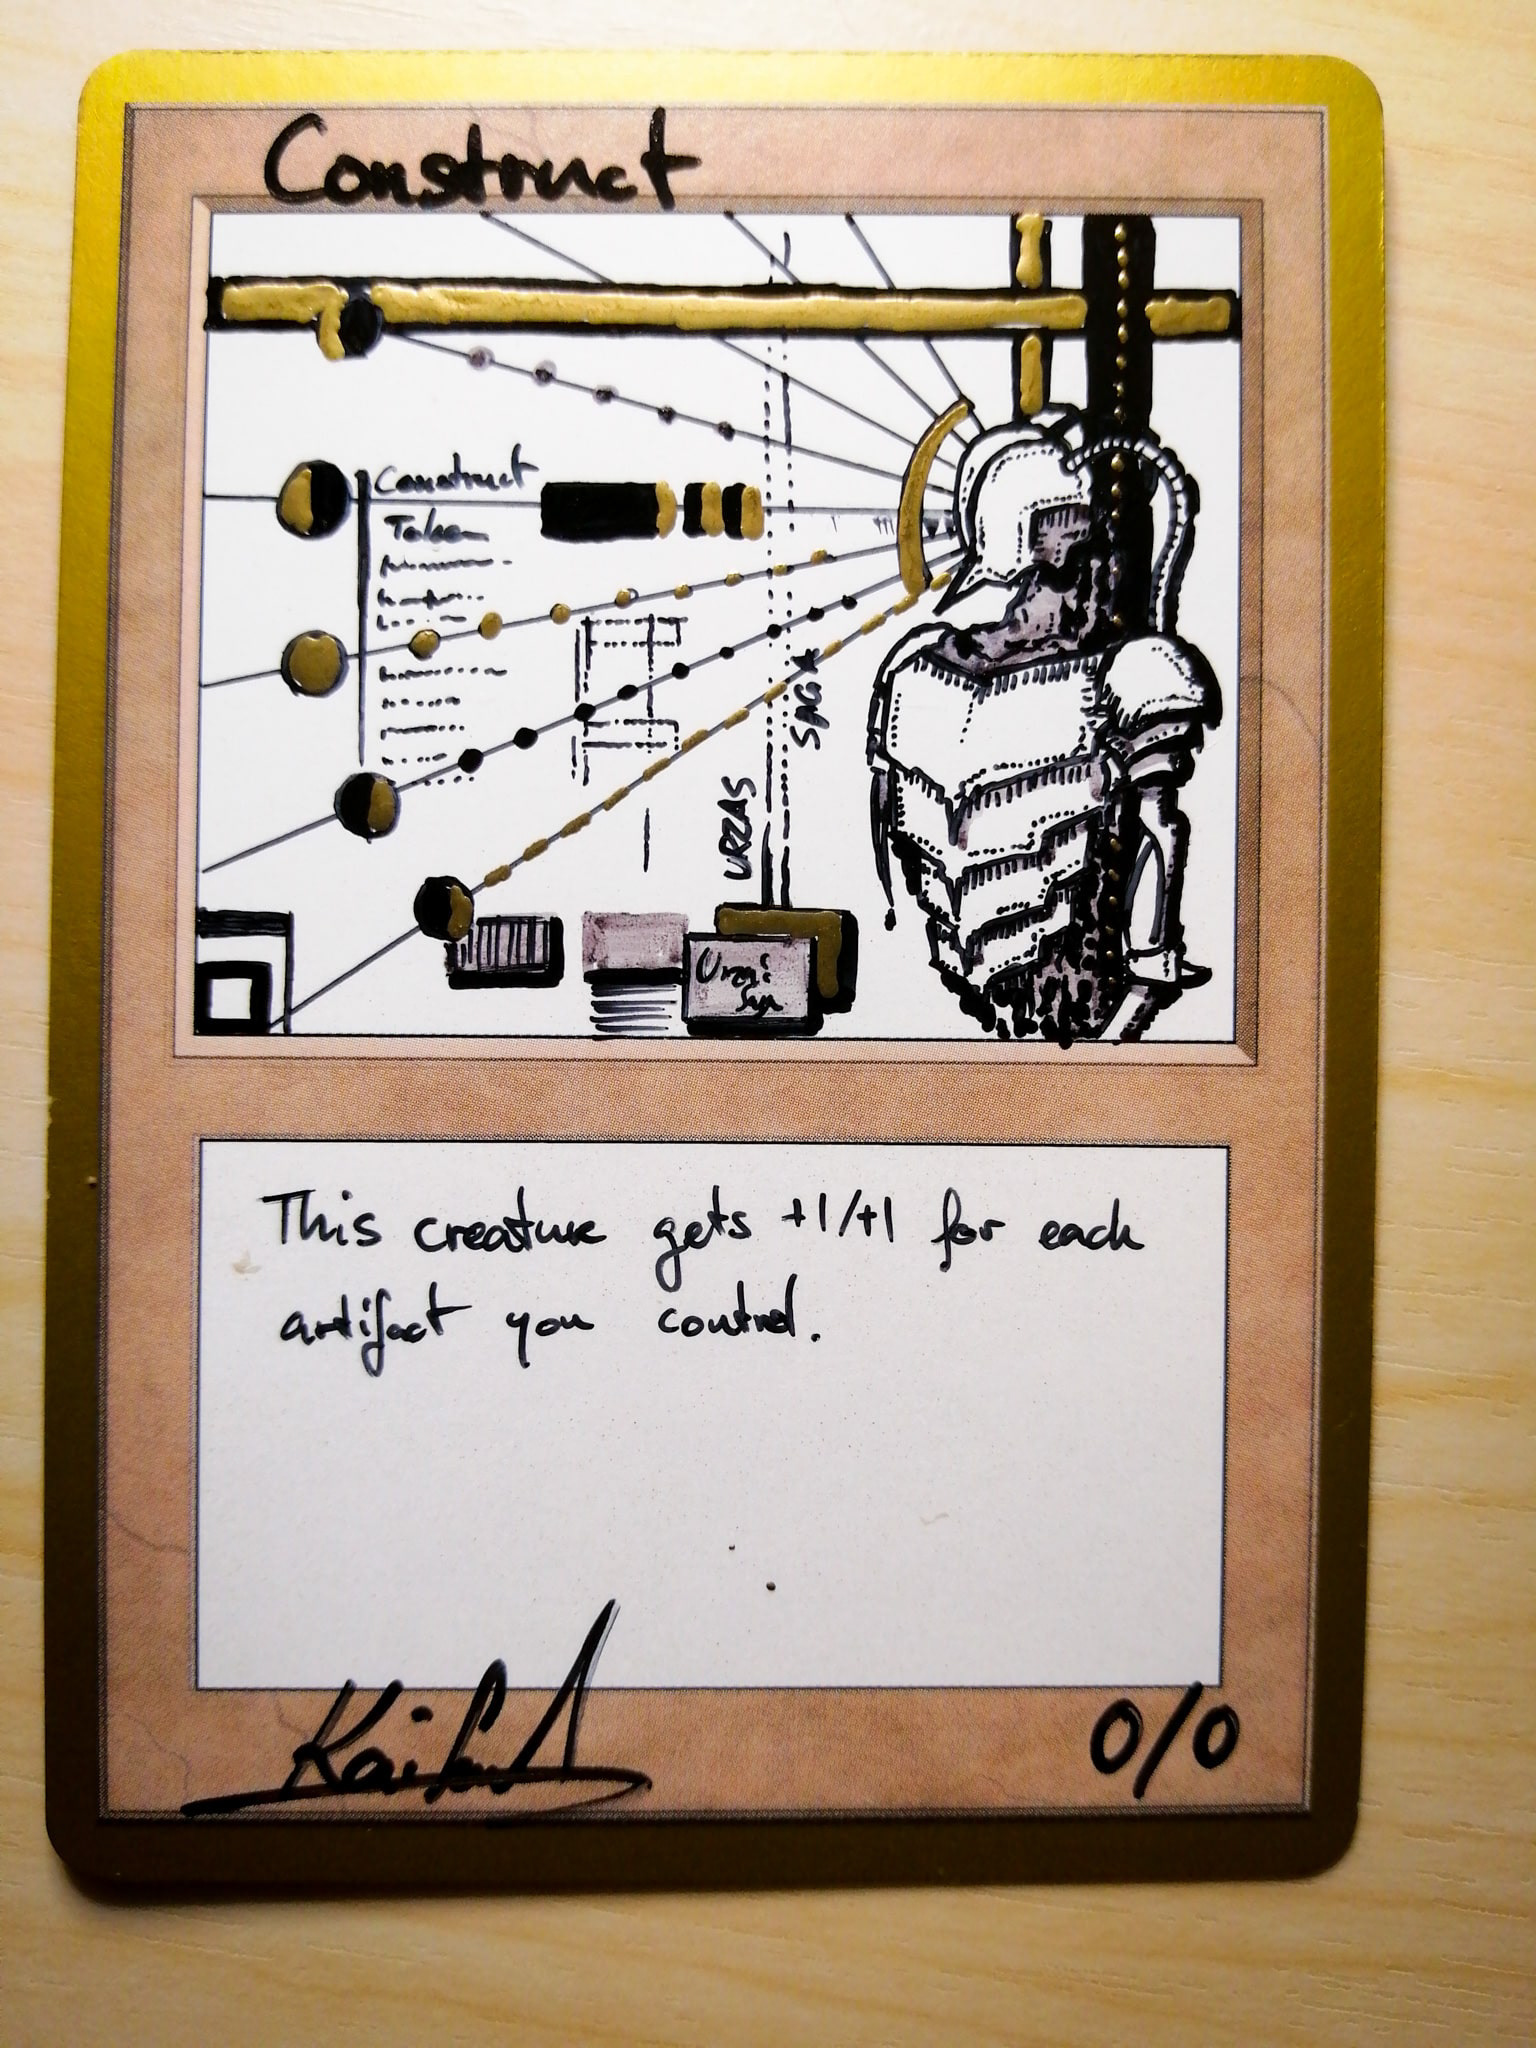 Construct
Construct
Token
URZAS
SAGA
This creature gets +1/+1 for each
artifact you control.
0/0